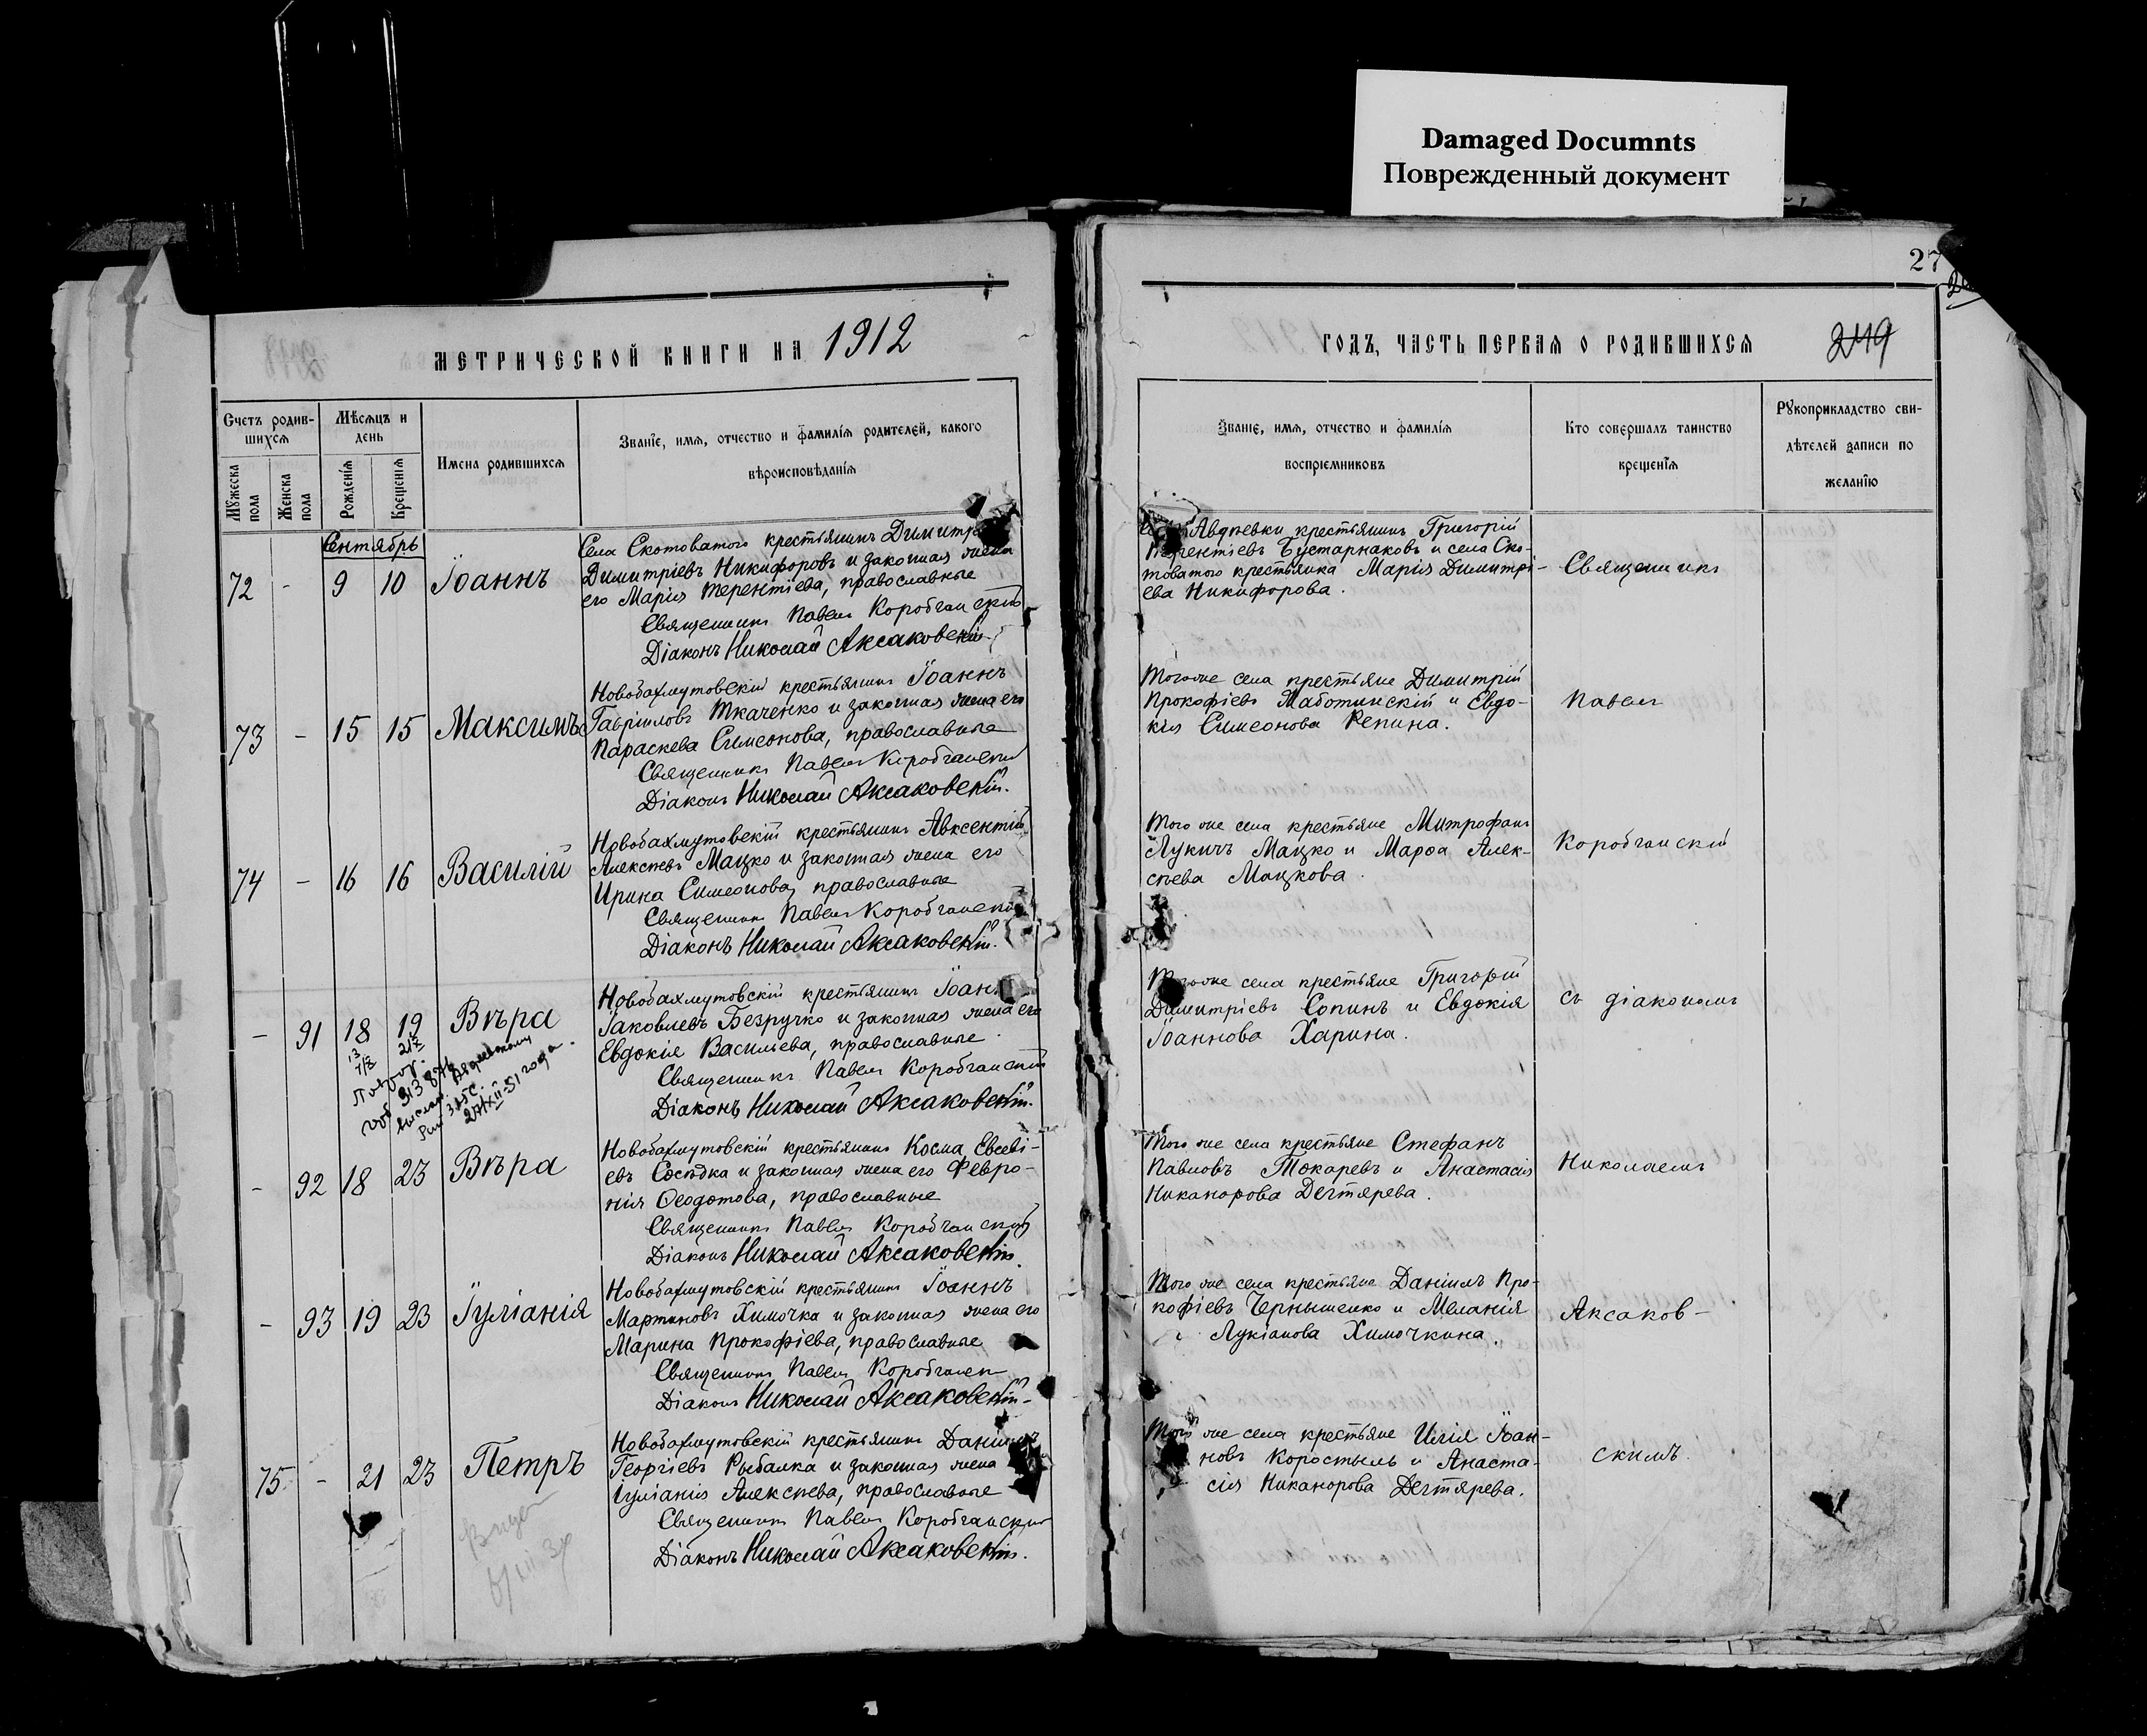 Damaged Documnts
Поврежденный документ
27
МЕТРИЧЕСКОЙ КНИГИ НА 1912
ГОДЪ, ЧАСТЬ ПЕРВАЯ О РОДИВШИХСЯ
249
Счетъ родив-
шихся
Мужеска пола
Женска пола
Мѣсяцъ и
день
Рожденія
Крещенія
Имена родившихся
Званіе, имя, отчество и фамилія родителей, какого
вѣроисповѣданія
Званіе, имя, отчество и фамилія
воспріемниковъ
Кто совершалъ таинство
крещенія
Рукоприкладство сви-
дѣтелей записи по
желанію
Сентябрь
72 - 9 10 Іоаннъ
Села Скотоватого крестьянинъ Димитрі
Димитріевъ Никифоровъ и законная жена
его Марія Терентіева, православные
Священникъ Павелъ Коробчанскій
Діаконъ Николай Аксаковскій.
Авдѣевки крестьянинъ Григорій
Терентіевъ Бустарнаковъ и села Ско-
товатого крестьянка Марія Димитрі-
ева Никифорова.
Священникъ
73 - 15 15 Максимъ
Новобахмутовскій крестьянинъ Іоаннъ
Гавріиловъ Ткаченко и законная жена его
Параскева Симеонова, православные
Священникъ Павелъ Коробчанскій
Діаконъ Николай Аксаковскій.
Того же села крестьяне Димитрій
Прокофіевъ Маботинскій и Евдо-
кія Симеонова Репина.
Павелъ
74 - 16 16 Василій
Новобахмутовскій крестьянинъ Авксентій
Алексѣевъ Мацко и законная жена его
Ирина Симеонова, православные
Священникъ Павелъ Коробчанскій
Діаконъ Николай Аксаковскій.
Того же села крестьяне Митрофанъ
Лукичъ Мацко и Марѳа Алек-
сѣева Мацкова.
Коробчанскій
- 91 18 19 Вѣра
Новобахмутовскій крестьянинъ Іоан
Іаковлевъ Безручко и законная жена его
Евдокія Васильева, православные
Священникъ Павелъ Коробчанскій
Діаконъ Николай Аксаковскій.
Того же села крестьяне Григорій
Димитріевъ Сопинъ и Евдокія
Іоаннова Харина.
съ діакономъ
27/XII-51 года.
- 92 18 23 Вѣра
Новобахмутовскій крестьянинъ Косма Евсеві-
евъ Сосѣдка и законная жена его Февро-
нія Ѳеодотова, православные
Священникъ Павелъ Коробчанскій
Діаконъ Николай Аксаковскій.
Того же села крестьяне Стефанъ
Павловъ Токаревъ и Анастасія
Никанорова Дегтярева.
Николаемъ
- 93 19 23 Іуліанія
Новобахмутовскій крестьянинъ Іоаннъ
Мартиновъ Химочка и законная жена его
Марина Прокофіева, православные
Священникъ Павелъ Коробчанск
Діаконъ Николай Аксаковскій.
Того же села крестьяне Даніилъ Про-
кофіевъ Чернышенко и Меланія
Лукіанова Химочкина.
Аксаков-
75 - 21 23 Петръ
Новобахмутовскій крестьянинъ Даніилъ
Георгіевъ Рыбалка и законная жена
Іуліанія Алексѣева, православные
Священникъ Павелъ Коробчанскій
Діаконъ Николай Аксаковскій.
Того же села крестьяне Илія Іоан-
новъ Коростыль и Анаста-
сія Никанорова Дегтярева.
скимъ.